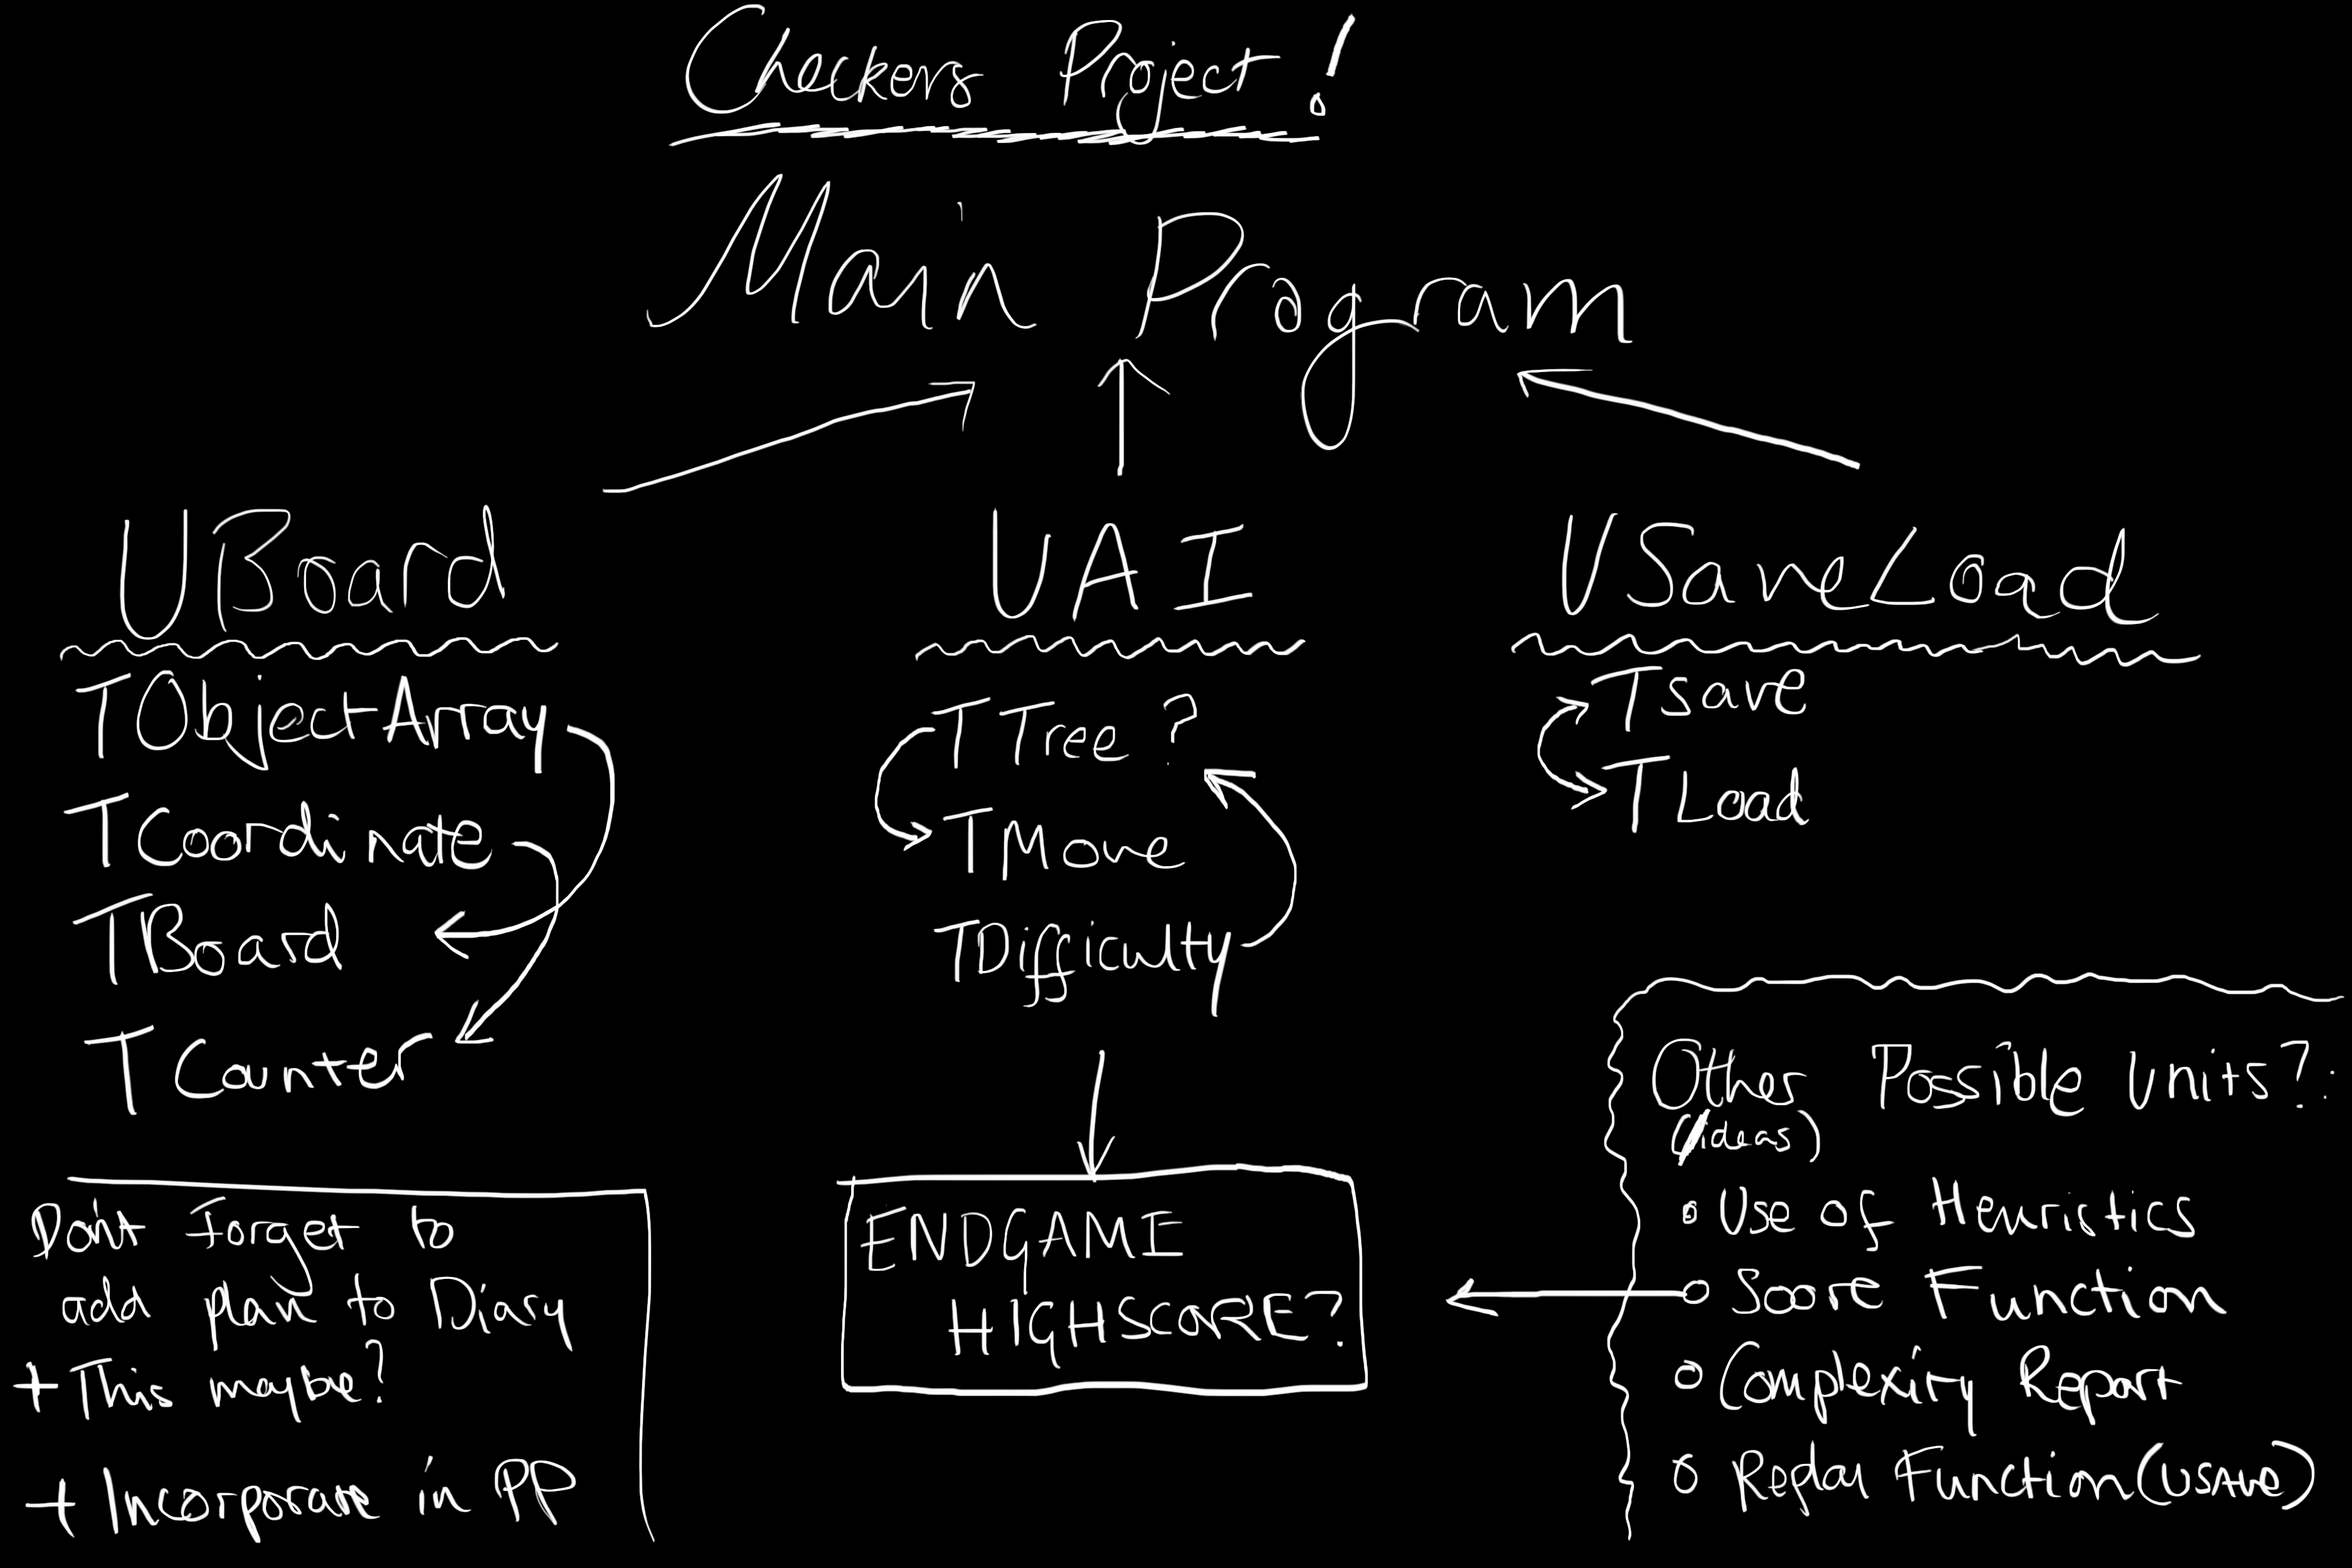 Checkers Project!
Main Program
UBoard
TObjectArray
TCoordinate
TBoard
TCounter
UAI
TTree?
TMove
TDifficulty
USaveLoad
Tsave
TLoad
Don't forget to
add plan to Diary
+ This maybe?
+ Incorporate in PP
ENDGAME
HIGHSCORE?
Other Possible Units?:
(ideas)
Use of Heuristics
Score Function
Complexity Report
Replay Function (USAVE)